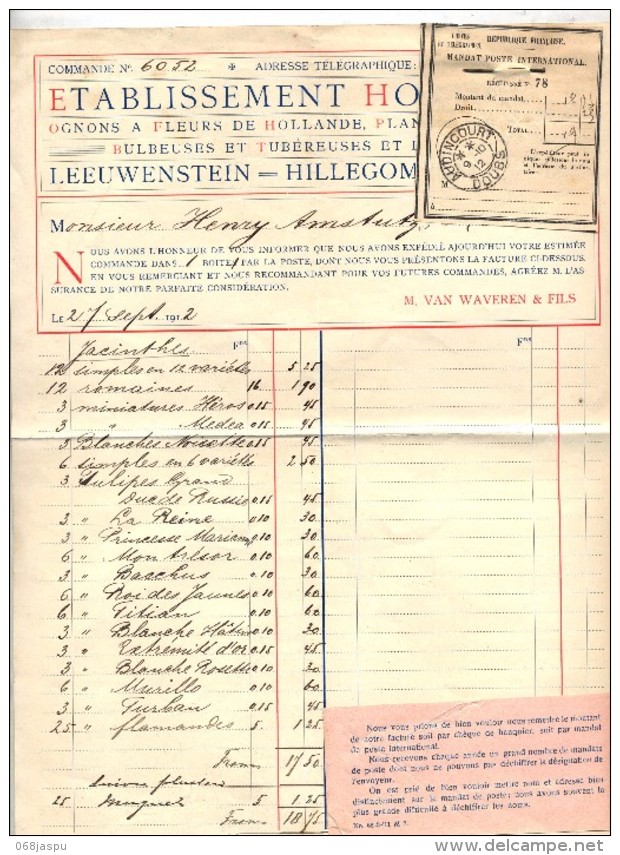 COMMANDE No. 6052 * ADRESSE TÉLÉGRAPHIQUE:
ETABLISSEMENT HO
OGNONS A FLEURS DE HOLLANDE, PLAN
BULBEUSES ET TUBÉREUSES ET
LEEUWENSTEIN = HILLEGOM
RÉPUBLIQUE FRANÇAISE.
MANDAT POSTE INTERNATIONAL.
RÉCÉPISSÉ No. 78
Montant du mandat
Droit
TOTAL
M
AUDINCOURT
DOUBS
Monsieur Henry Amstutz,
NOUS AVONS L'HONNEUR DE VOUS INFORMER QUE NOUS AVONS EXPÉDIÉ AUJOURD'HUI VOTRE ESTIMÉE
COMMANDE DANS 1 BOITE/ PAR LA POSTE, DONT NOUS VOUS PRÉSENTONS LA FACTURE CI-DESSOUS.
EN VOUS REMERCIANT ET NOUS RECOMMANDANT POUR VOS FUTURES COMMANDES, AGRÉEZ M. L'AS
SURANCE DE NOTRE PARFAITE CONSIDÉRATION.
M. VAN WAVEREN & FILS
LE 27 Sept. 1912
Fcs Fcs
Jacinthes
12 simples en 12 variétés 5 25
12 romaines 16 1 90
3 miniatures Héros 0.15 45
3 " Medea 0.15 45
3 Blanches Noisette 0.15 45
6 simples en 6 variétés 2 50
3 Tulipes Grand
Duc de Russie 0.15 45
3 " La Reine 0.10 30
3 " Princesse Mariann 0.10 30
6 " Mon trésor 0.10 60
3 " Bacchus 0.10 30
6 " Roi des Jaunes 0.10 60
6 " Titian 0.10 60
3 " Blanche Hâtive 0.10 30
3 " Extremité d'or 0.15 45
3 " Blanche Rosette 0.10 30
6 " Murillo 0.10 60
3 " Turban 0.15 45
25 " flamandes 5. 1 25
Francs 17 50
25 Muguet 5 1 25
Francs 18 75
Nous vous prions de bien vouloir nous remettre le montant
de notre facture soit par chèque de banquier, soit par mandat
de poste international.
Nous recevons chaque année un grand nombre de mandats
de poste dont nous ne pouvons pas déchiffrer la désignation de
l'envoyeur.
On est prié de bien vouloir mettre nom et adresse bien
distinctement sur le mandat de poste; nous avons souvent la
plus grande difficulté à déchiffrer les noms.
068jaspu
delcampe.net